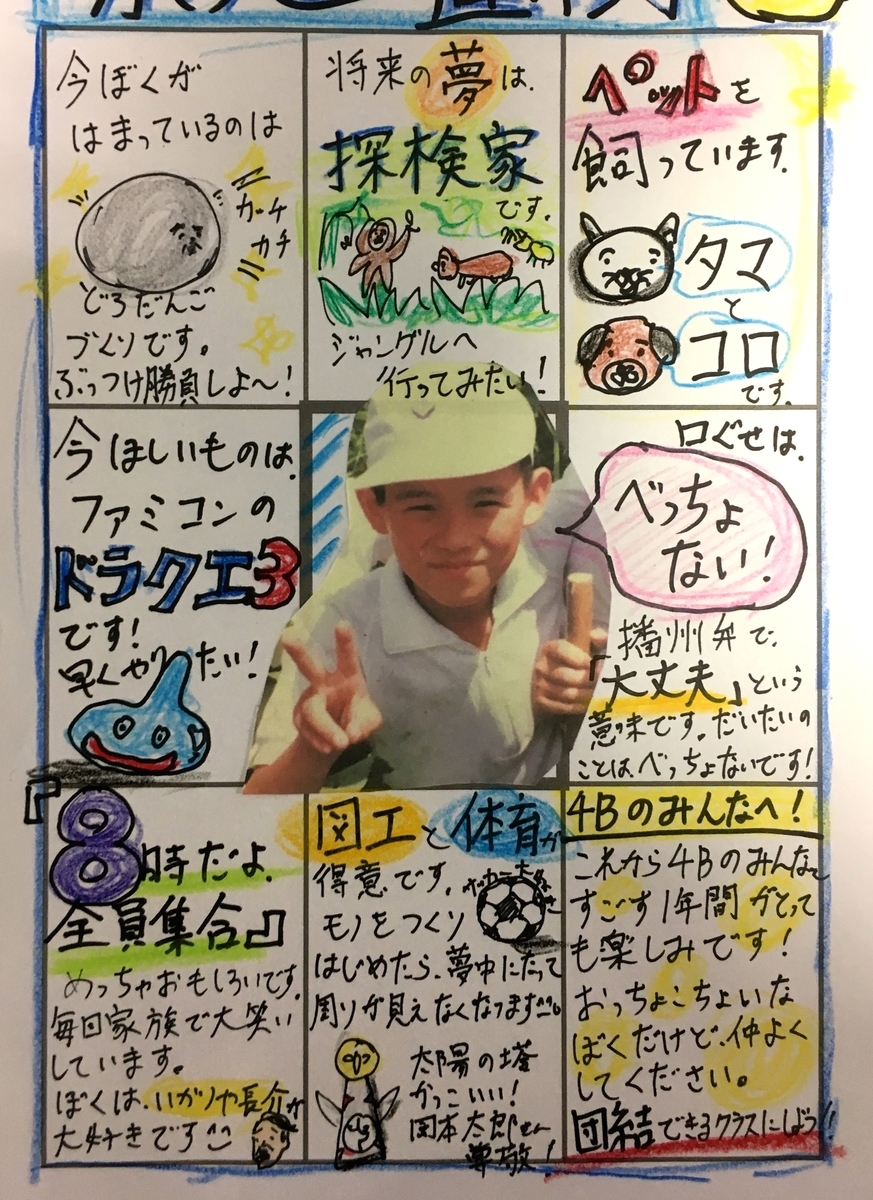 今ぼくが
はまっているのは
カチ
カチ
どろだんご
づくりです。
ぶっつけ勝負しよ〜!
将来の夢は、
探検家
です。
ジャングルへ
行ってみたい!
ペットを
飼っています。
タマ
と
コロ
です。
今ほしいものは、
ファミコンの
ドラクエ3
です!
早くやりたい!
口ぐせは、
べっちょ
ない!
播州弁で、
「大丈夫」という
意味です。だいたいの
ことはべっちょないです!
『8時だよ
全員集合』
めっちゃおもしろいです。
毎日家族で大笑い
しています。
ぼくは、いかりや長介が
大好きです
図工と体育が
得意です。
モノをつくり
はじめたら、夢中になって
周りが見えなくなります。
太陽の塔
かっこいい!
岡本太郎さん
尊敬!
4Bのみんなへ!
これから4Bのみんなと
すごす1年間がとって
も楽しみです!
おっちょこちょいな
ぼくだけど、仲よく
してください。
団結できるクラスにしよう!!